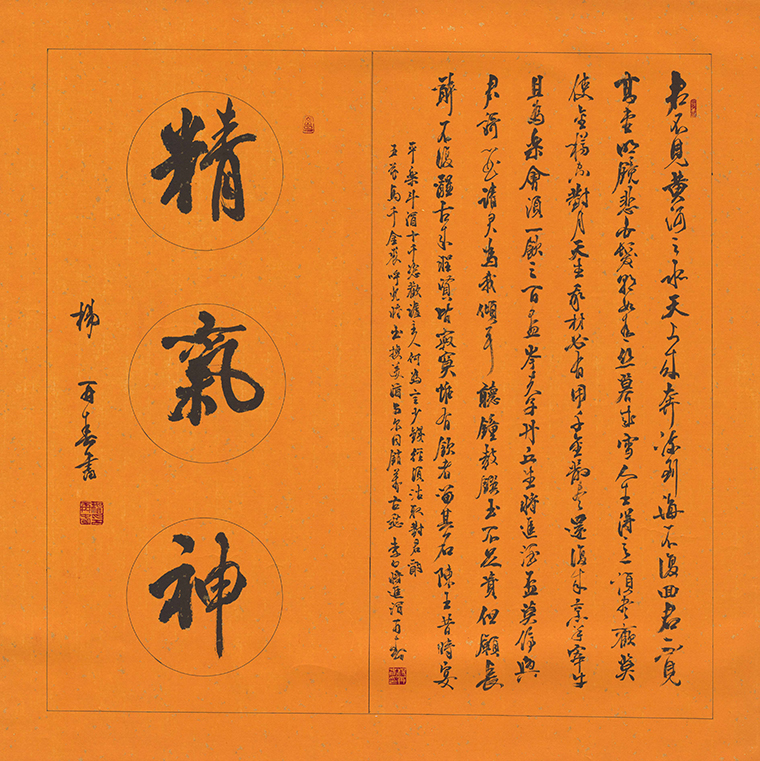 君不見黄河之水天上來奔流到海不復回君不見
高堂明鏡悲白髮朝如青絲暮成雪人生得意須盡歡莫
使金樽空對月天生我材必有用千金散盡還復來烹羊宰牛
且為樂會須一飲三百盃岑夫子丹丘生將進酒盃莫停與
君歌一曲請君為我傾耳聽鐘鼓饌玉不足貴但願長
醉不復醒古來聖賢皆寂寞惟有飲者留其名陳王昔時宴
平樂斗酒十千恣歡謔主人何為言少錢徑須沽取對君酌
五花馬千金裘呼兒將出換美酒與爾同銷萬古愁李白將進酒
精
氣
神
楊
春書